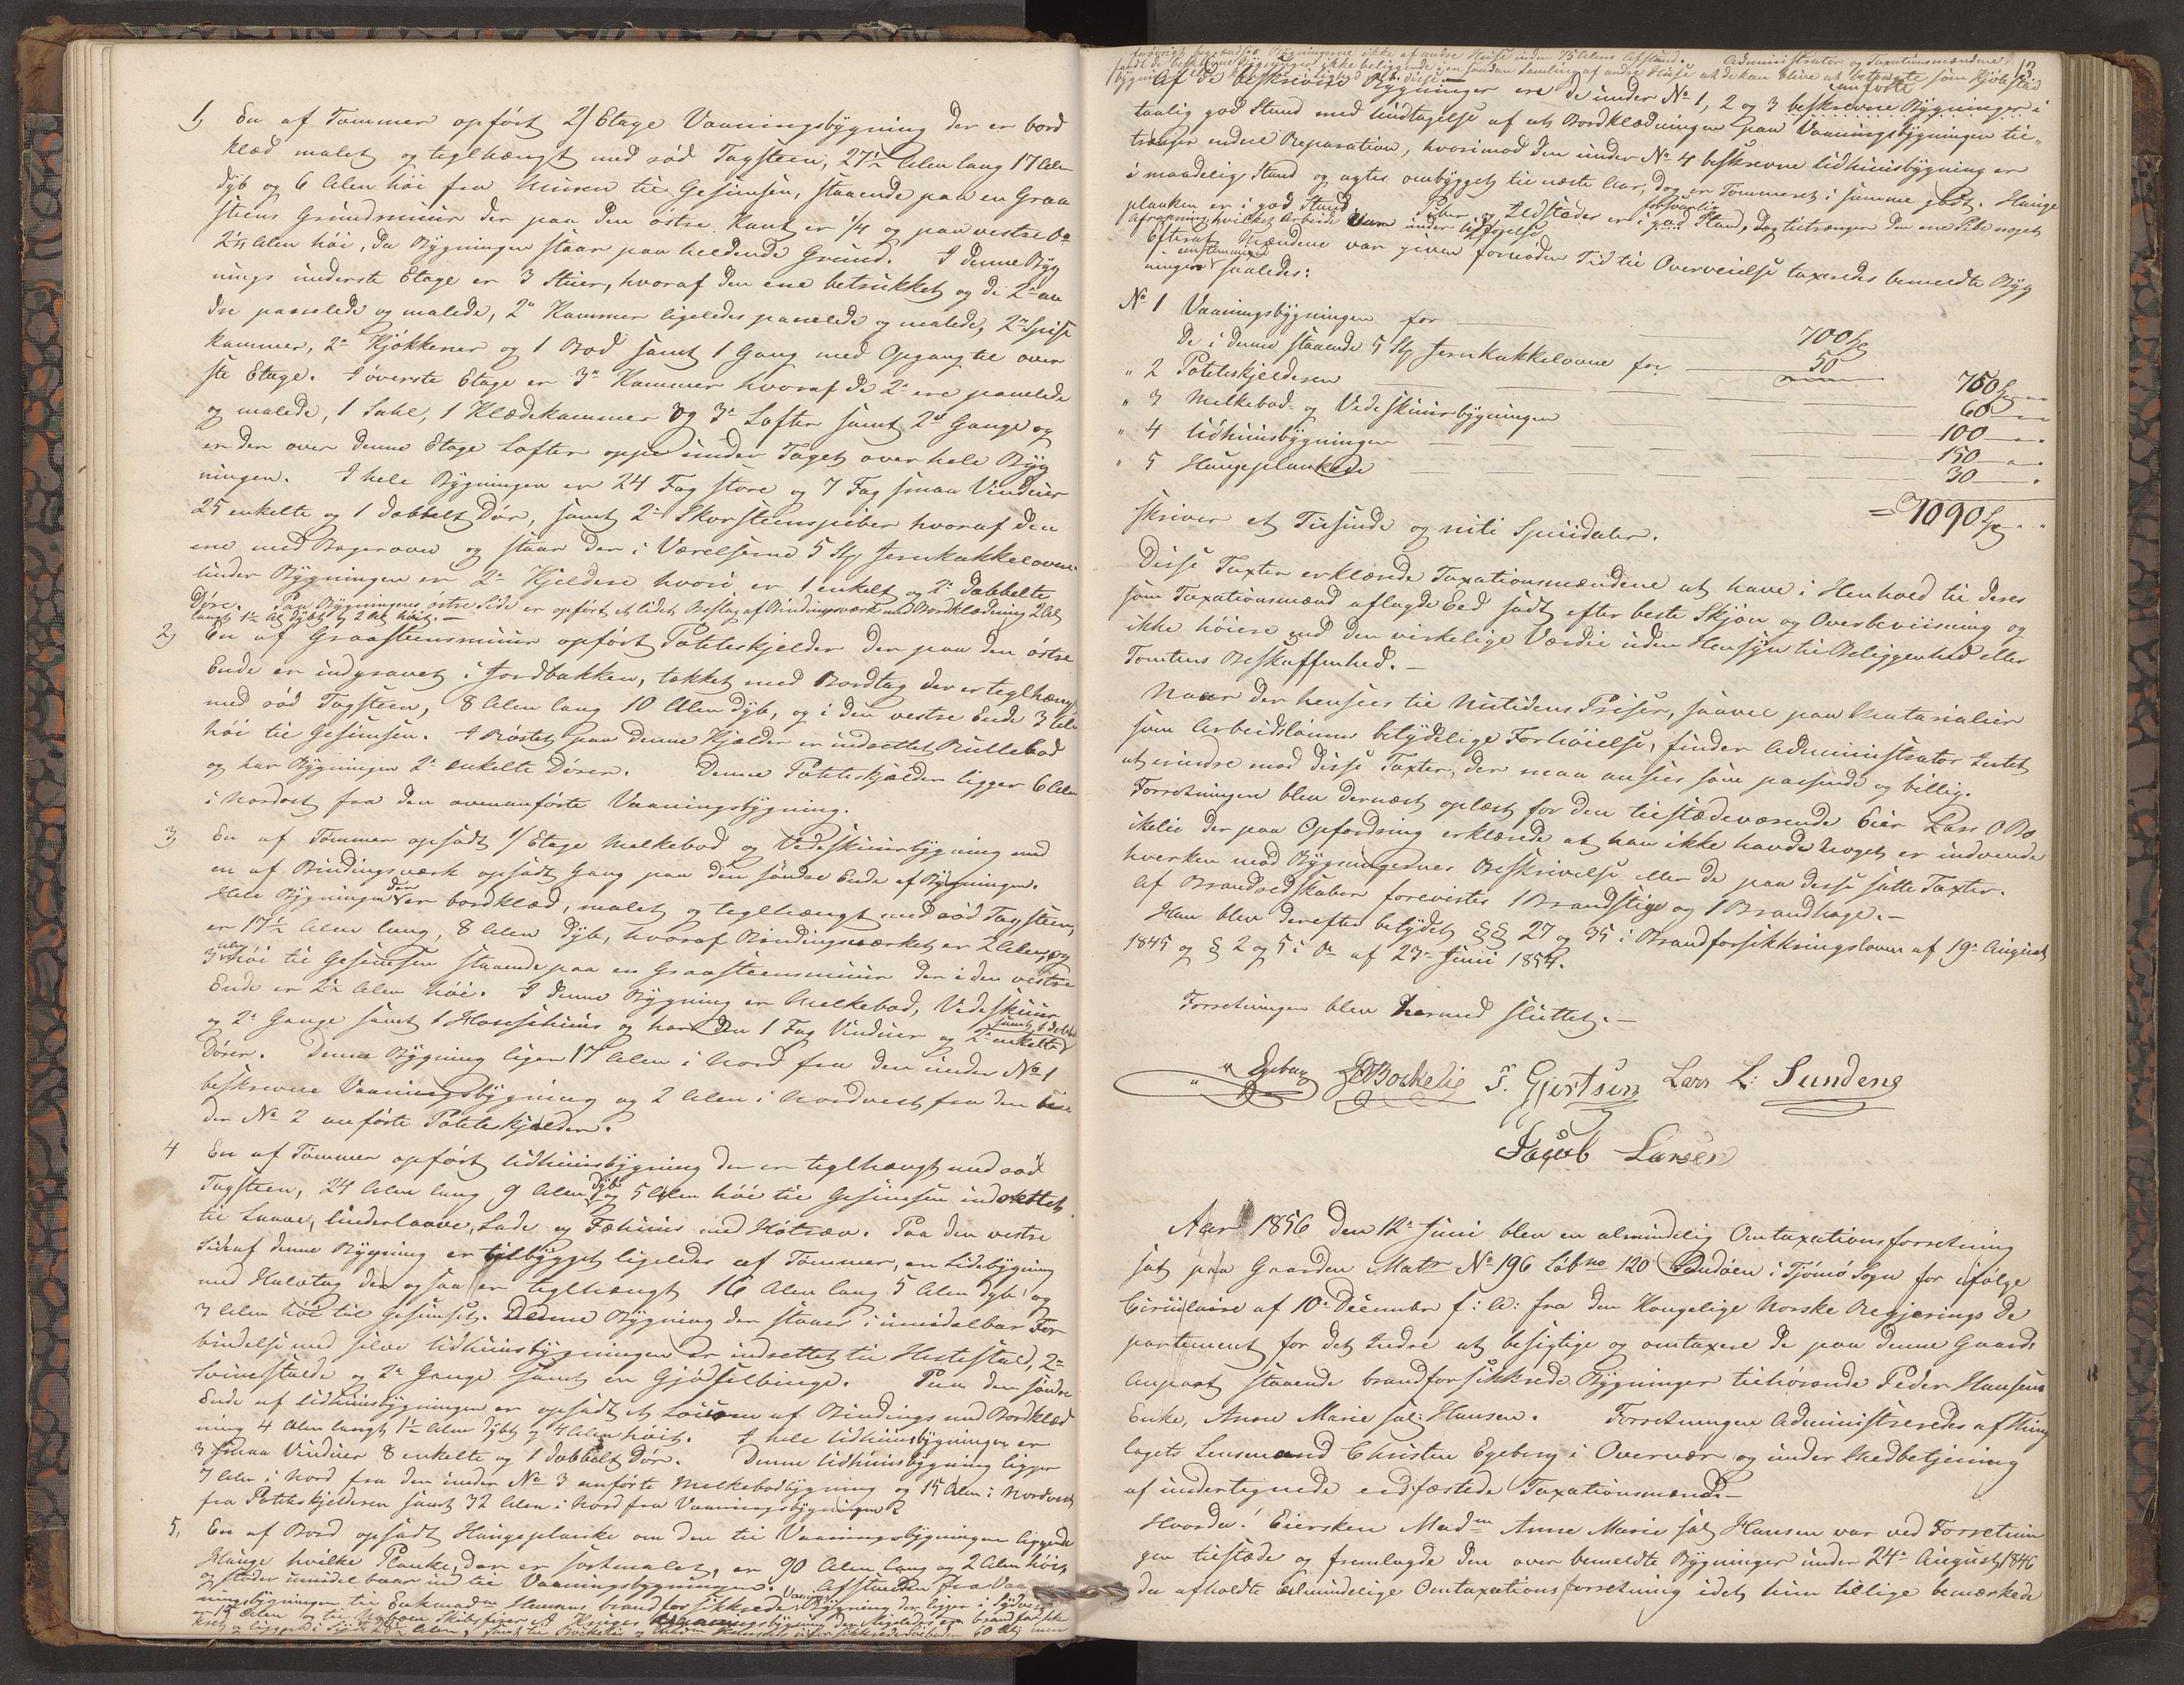 1) En af Tømmer opført 2/ Etage Vaaningsbygning der er bord
klæd malet og teglhængt med rød Tagsteen, 27½ Alen lang 17 Alen
dyb og 6 Alen høi fra Muren til Gesimsen, staaende paa en Graa
steens Grundmuur der paa den østre Kant er ¼ og paa vestre Do
2½ Alen høi, da Bygningen staar paa heldende Grund. I denne Byg
nings underste Etage er 3 Stuer, hvoraf den ene betrukket og de 2de an
dre panelede og malede, 2de Kammer ligeledes panelede og malede, 2de Spise
kammer, 2de Kjøkkener og 1 Bod samt 1 Gang med Opgang til øver
ste Etage. I øverste Etage er 3de Kammer hvoraf de 2de ere panelede
og malede, 1 Sahl, 1 Klædekammer og 3de Lofter samt 2de Gange og
er der over denne Etage Lofter oppe under Taget over hele Byg
ningen. I hele Bygningen er 24 Fag store og 7 Fag smaa Vinduer
25 enkelte og 1 dobbelt Dør, samt 2de Skorsteenspiber hvoraf den
ene med Bagerovn og staar der i Værelserne 5 Stk Jernkakkelovne
under Bygningen er 2de Kjeldere hvori er 1 enkelt og 2de dobbelte
Døre. Paa Bygningens østre Side er opført et lidet Beslag af Bindingsværk med Bordklædning 2 Al
langt 1½ Al dybt og 2 Al høit. —
2) En af Graasteensmuur opført Poteteskjelder der paa den østre
Ende er indgravet i Jordbakken, takket med Bordtag der er teglhængt
med rød Tagsteen, 8 Alen lang 10 Alen dyb, og i den vestre Ende 3 Alen
høi til Gesimsen. I Røstet paa denne Kjælder er indrettet Rullebod
og har Bygningen 2de enkelte Dører. Denne Poteteskjælder ligger 6 Alen
i Nordost fra den ovenanførte Vaaningsbygning.
3 En af Tømmer opsadt 1/ Etage Melkebod og Vedeskuursbygning med
en af Bindingsværk opsadt Gang paa den søndre Ende af Bygningen.
Hele Bygningen der er bordklæd, malet og teglhængt med rød Tagsteen,
er 17½ Alen lang, 8 Alen dyb, hvoraf Bindingsværket er 2 Alen, og
3 Alen høi til Gesimsen staaende paa en Graasteensmuur der i den vestre
Ende er 2½ Alen høi. I denne Bygning er Melkebod, Vedeskuur
og 2de Gange samt 1 og har den 1 Fag Vinduer og 2de enkelte samt 1 dobbelt
Dører. Denne Bygning ligger 17 Alen i Nord fra den under No 1
beskrevne Vaaningsbygning og 2 Alen i Nordvest fra den un
der No 2 anførte Poteteskjælder.
4 En af Tømmer opført Udhuusbygning der er teglhængt med rød
Tagsteen, 24 Alen lang 9 Alen dyb og 5 Alen høi til Gesimsen indrettet
til Laave, Underlaave, Lade og Fæhuus med Høtræv. Paa den vestre
Side af denne Bygning er tilbygget ligeledes af Tømmer, en Sidebygning
med Halvtag der ogsaa er teglhængt 16 Alen lang 5 Alen dyb og
3 Alen høi til Gesimset. Denne Bygning der staaer i umidelbar For
bindelse med selve Udhuusbygningen er indrettet til Hestestald, 2de
Sviinestalde og 2de Gange samt en Gjødselbinge. Paa den søndre
Ende af Udhuusbygningen er opsadt et af Bindings med Bordklæd
ning 4 Alen langt 1½ Alen dybt og 4 Alen høit. I hele Udhuusbygningen er
3 smaa Vinduer 8 enkelte og 1 dobbelt Dør. Denne Udhuusbygning ligger
7 Alen i Nord fra den under No 3 anførte Melkebodbygning og 15 Alen i Nordvest
fra Poteteskjelderen samt 32 Alen i Nord fra Vaaningsbygningen
5, En af Bord opsadt Haugeplanke om den til Vaaningsbygningen liggende
Hauge hvilke Planke, der er malet, er 90 Alen lang og 2 Alen høit,
og støder umidelbaar ind til Vaaningsbygningen. Afstanden fra Vaa
ningsbygningen til Enkemadm Hansens brandforsikkrede Vaaningsbygning der ligger i Sydvest
er 14 Alen og til Naboen Skibsfører A Vaaningsbygning der ligeledes er brandforsik
kret og ligger i 28½ Alen, samt til

13
forøvrigt Bygningerne ikke af andre Huse inden 75 Alens Afstand. Administrator og Taxationsmændene
fandt de beskrevne Bygninger ikke beliggende i en saadan Samling af andre Huse at de kan blive at betragte som Kjøbstad
Af de beskrevne Bygninger ere de under No 1, 2 og 3 anførte beskrevne Bygninger i
taalig god Stand med Undtagelse af at Bordklædningen paa Vaaningsbygningen til„
trænger endeel Reparation, hvorimod den under No 4 beskrevne Udhuusbygning er
i maadelig Stand og agtes ombygget til næste Aar, dog er Tømmeret i samme godt. Hauge
planken er i god Stand. Piber og Ildsteder er i forsvarlig god Stand, dog tiltrænger den ene Pibe noget
Afranning hvilket Arbeide under
Efterat Mændene var given fornøden Tid til Overveielse taxeredes bemeldte Byg
ninger eenstemmig saaledes:
No 1 Vaaningsbygningen for — 700 Sp
De i denne staaende 5 Stk Jernkakkelovne for — 50 750 Sp
" 2 Poteteskjelderen — 60 —
" 3 Melkebod- og Vedeskuursbygningen — 100 —
" 4 Udhuusbygningen — 150 —
" 5 Haugeplankede — 30 —
= 1090 Sp
skriver et Tusinde og niti Speciedaler.
Disse Taxter erklærede Taxationsmændene at have i Henhold til deres
som Taxationsmænd aflagde Eed sadt efter beste Skjøn og Overbeviisning og
ikke høiere end den virkelige Værdie uden Hensyn til Beliggenhed eller
Tomtens Beskaffenhed. —
Naar der hensees til Nutidens Priser, saavel paa Materialier
som Arbeidslønnens betydelige Forhøielse, finder Administrator Intet
at erindre mod disse Taxter, der maa ansees som passende og billig.
Forretningen blev dernæst oplæst for den tilstædeværende Eier Lars O Bo
ikelie der paa Opfordring erklærede at han ikke havde noget at indvende
hverken mod Bygningernes Beskrivelse eller de paa desse satte Taxter.
Af Brandredskaber forevistes 1 Brandstige og 1 Brandhage. —
Han blev derefter betydet §§ 27 og 35 i Brandforsikkringsloven af 19de August
1845 og § 2 og 5 i Do af 23de Juni 1854.
Forretningen blev hermed sluttet. —
Egeberg Bochelie T. Gjertsen Lars L: Sundene
Jacob Larsen
Aar 1856 den 12te Juni blev en almindelig Omtaxationsforretning
sat paa Gaarden Matr No 196 Løbno 120 Sandøen i Tjømø Sogn for ifølge
Cirkulaire af 10de December f: A: fra den Kongelige Norske Regjerings De
partement for det Indre at besigtige og omtaxere de paa denne Gaards
Anpart staaende brandforsikkrede Bygninger tilhørende Peder Hansens
Enke, Anne Marie sal: Hansen. Forretningen Administreredes af Thing
lagets Lensmand Christen Egeberg i Overvær og under Medbetjening
af undertegnede eedfæstede Taxationsmænd. —
Hvorda! Eiersken Madm Anne Marie sal Hansen var ved Forretnin
gen tilstæde og fremlagde den over bemeldte Bygninger under 24de August 1846
da afholdte almindelige Omtaxationsforretning idet hun tillige bemærkede